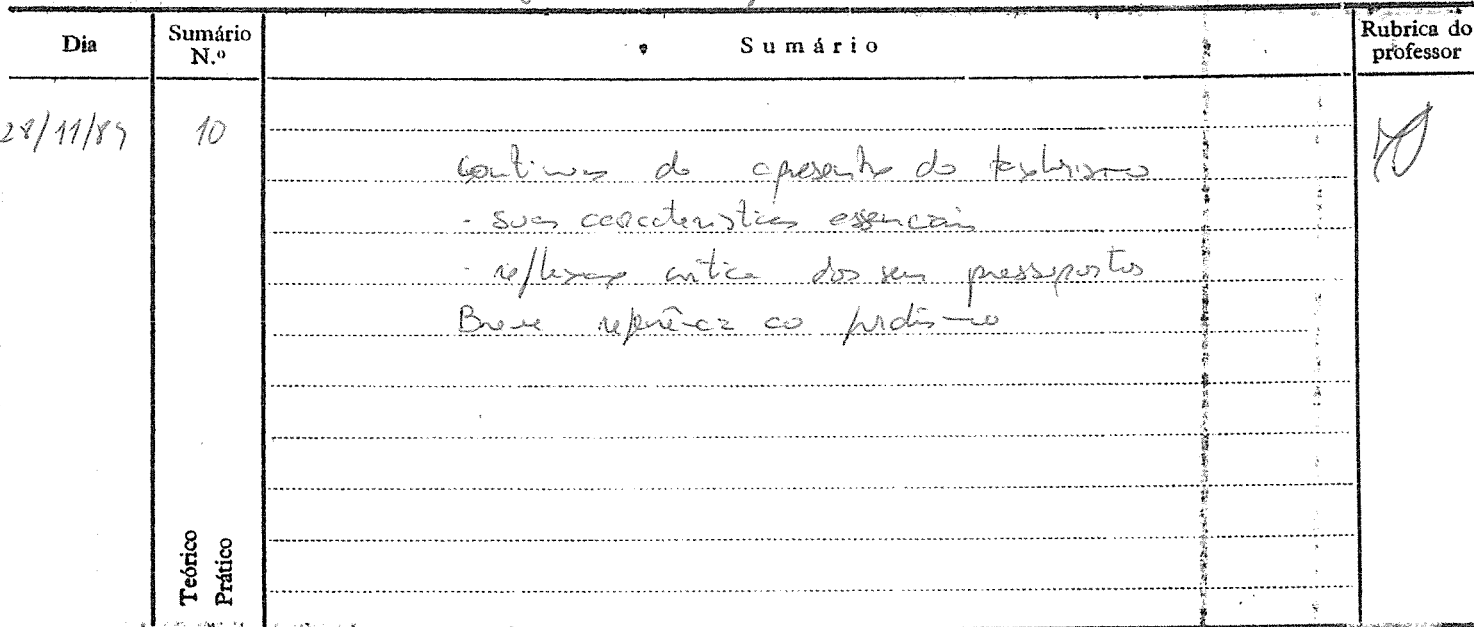 Dia
Sumário N.º
Sumário
Rubrica do professor
28/11/89
10
Continuação da apresentação do taylorismo
- suas características essenciais
- reflexão crítica dos seus pressupostos
Breve referência ao fordismo
Teórico
Prático